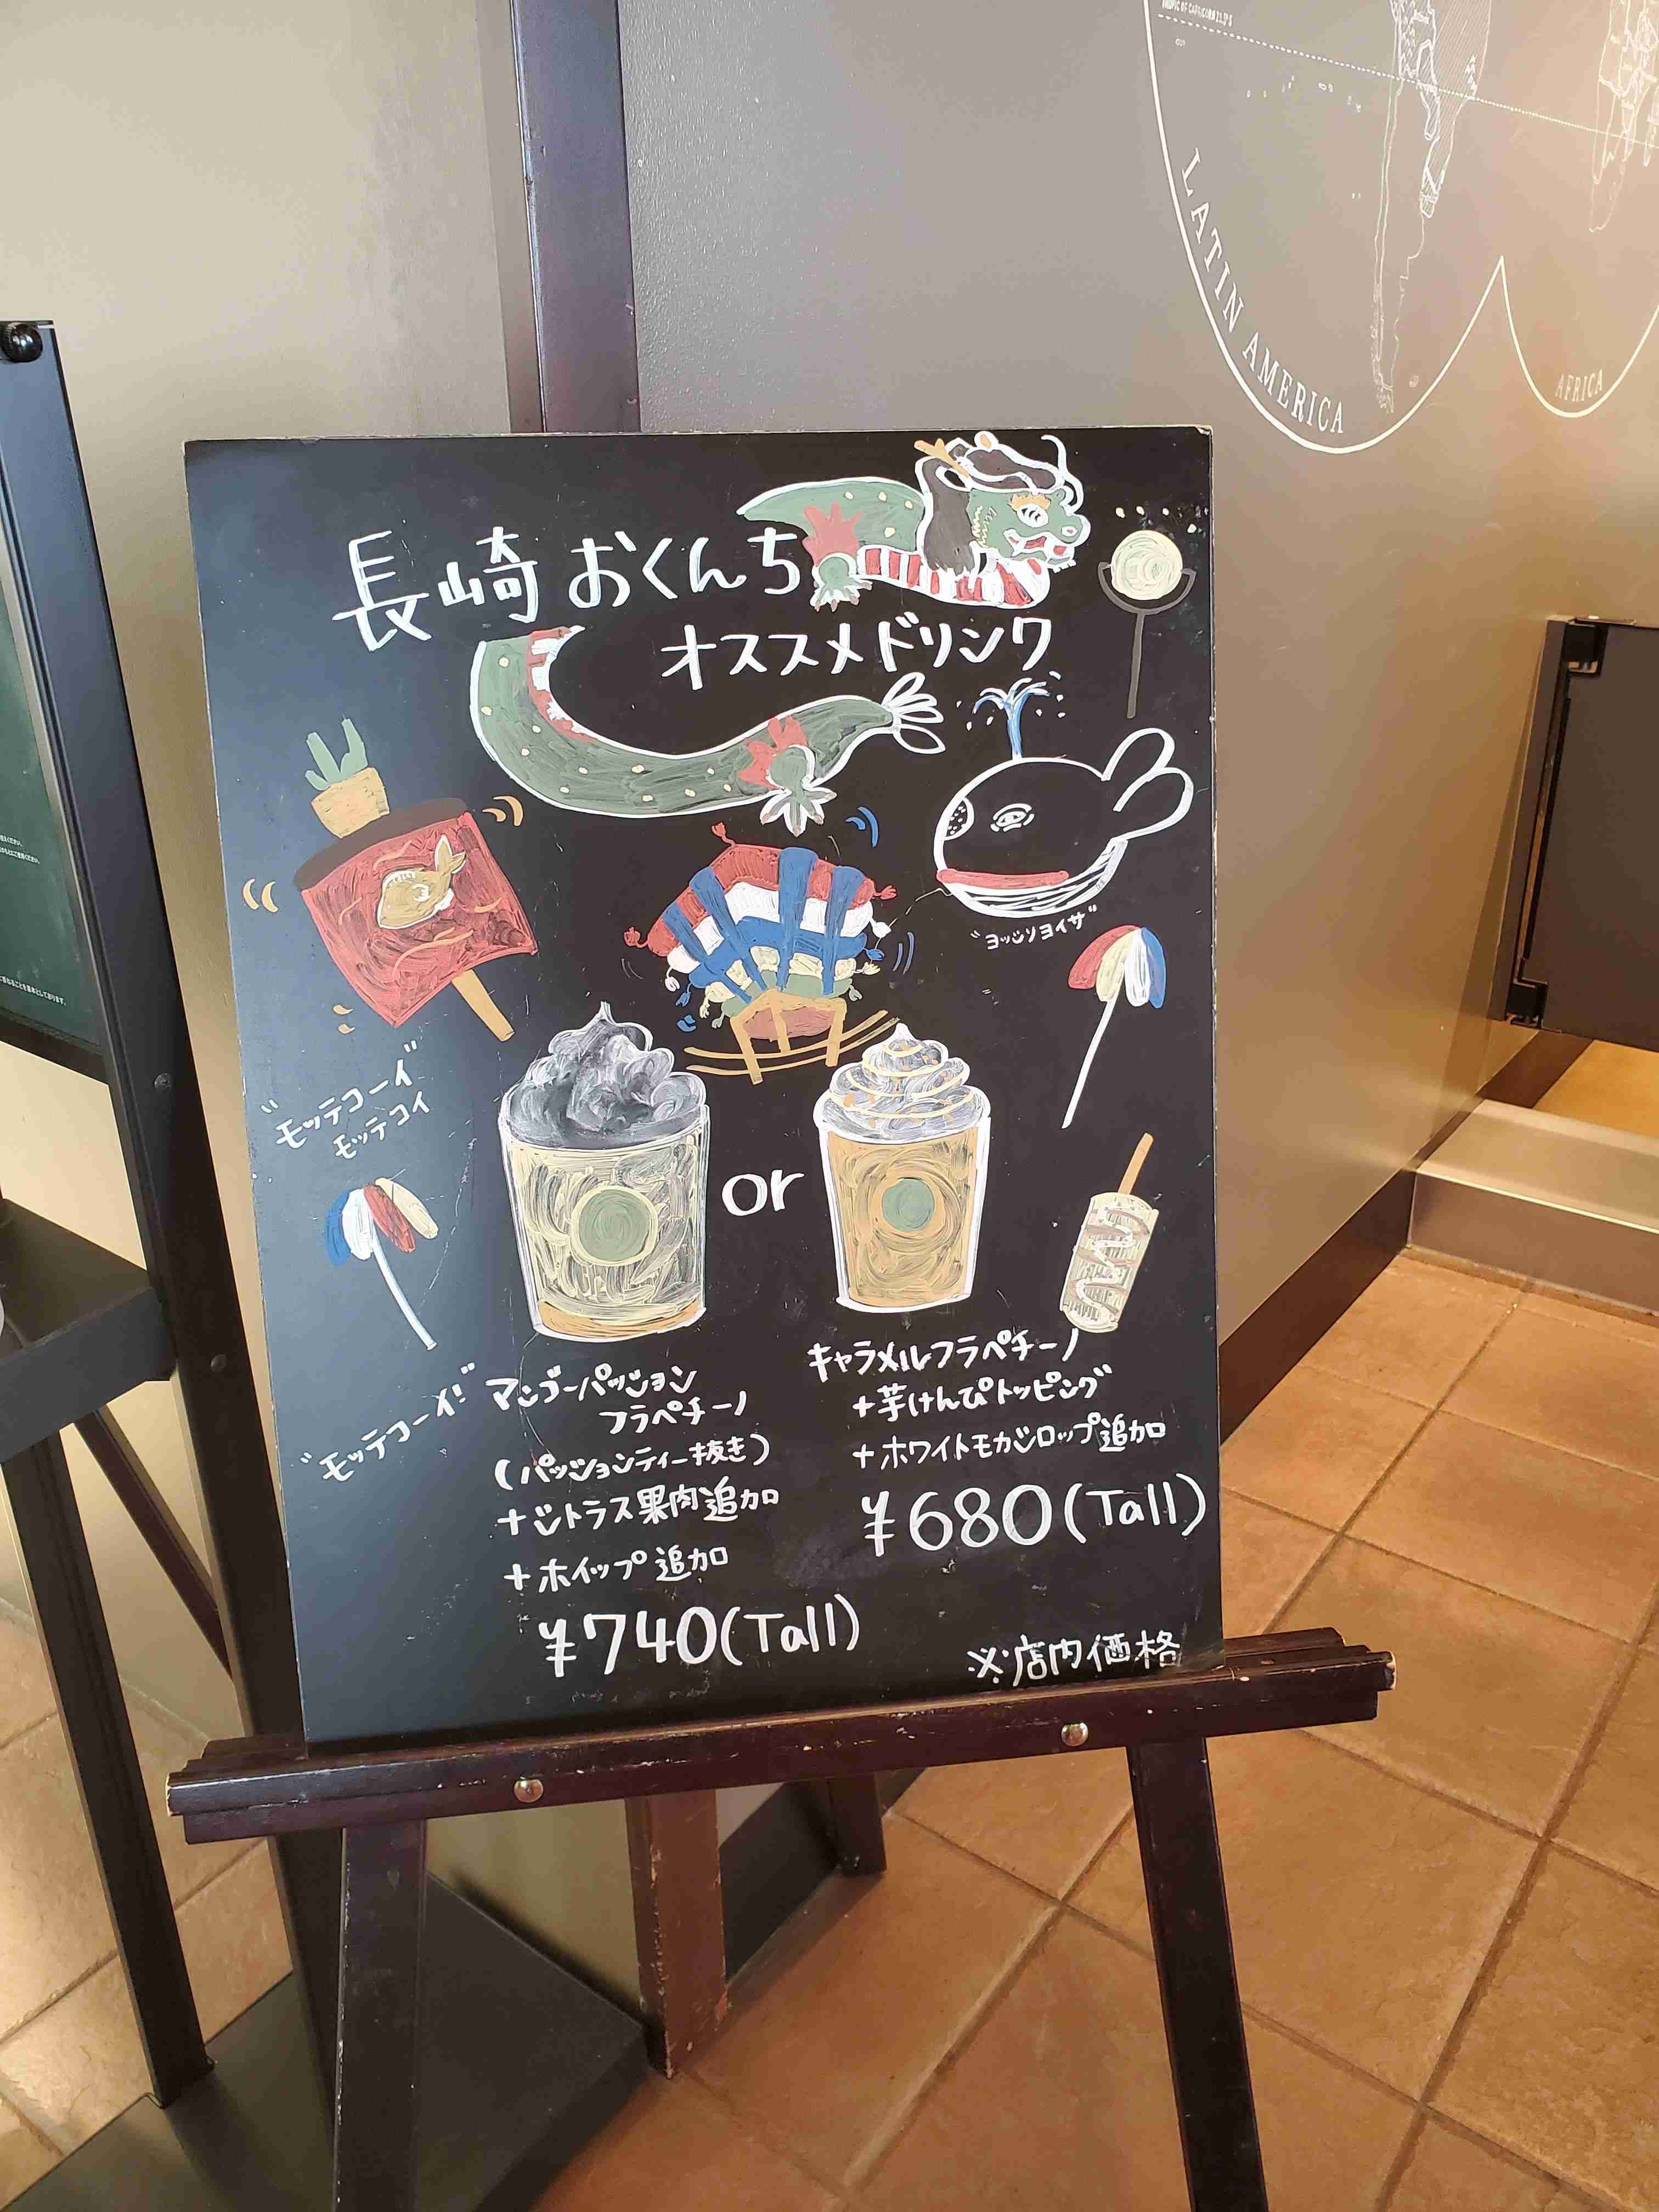 LATIN AMERICA
AFRICA
長崎 おくんち
オススメドリンク
"ヨッシンヨイサ"
"モッテコーイ"
モッテコイ
or
"モッテコーイ!"
マンゴーパッション
フラペチーノ
(パッションティー抜き)
+シトラス果肉追加
+ホイップ追加
¥740(Tall)
キャラメルフラペチーノ
+芋けんぴトッピング
+ホワイトモカシロップ追加
¥680(Tall)
※店内価格